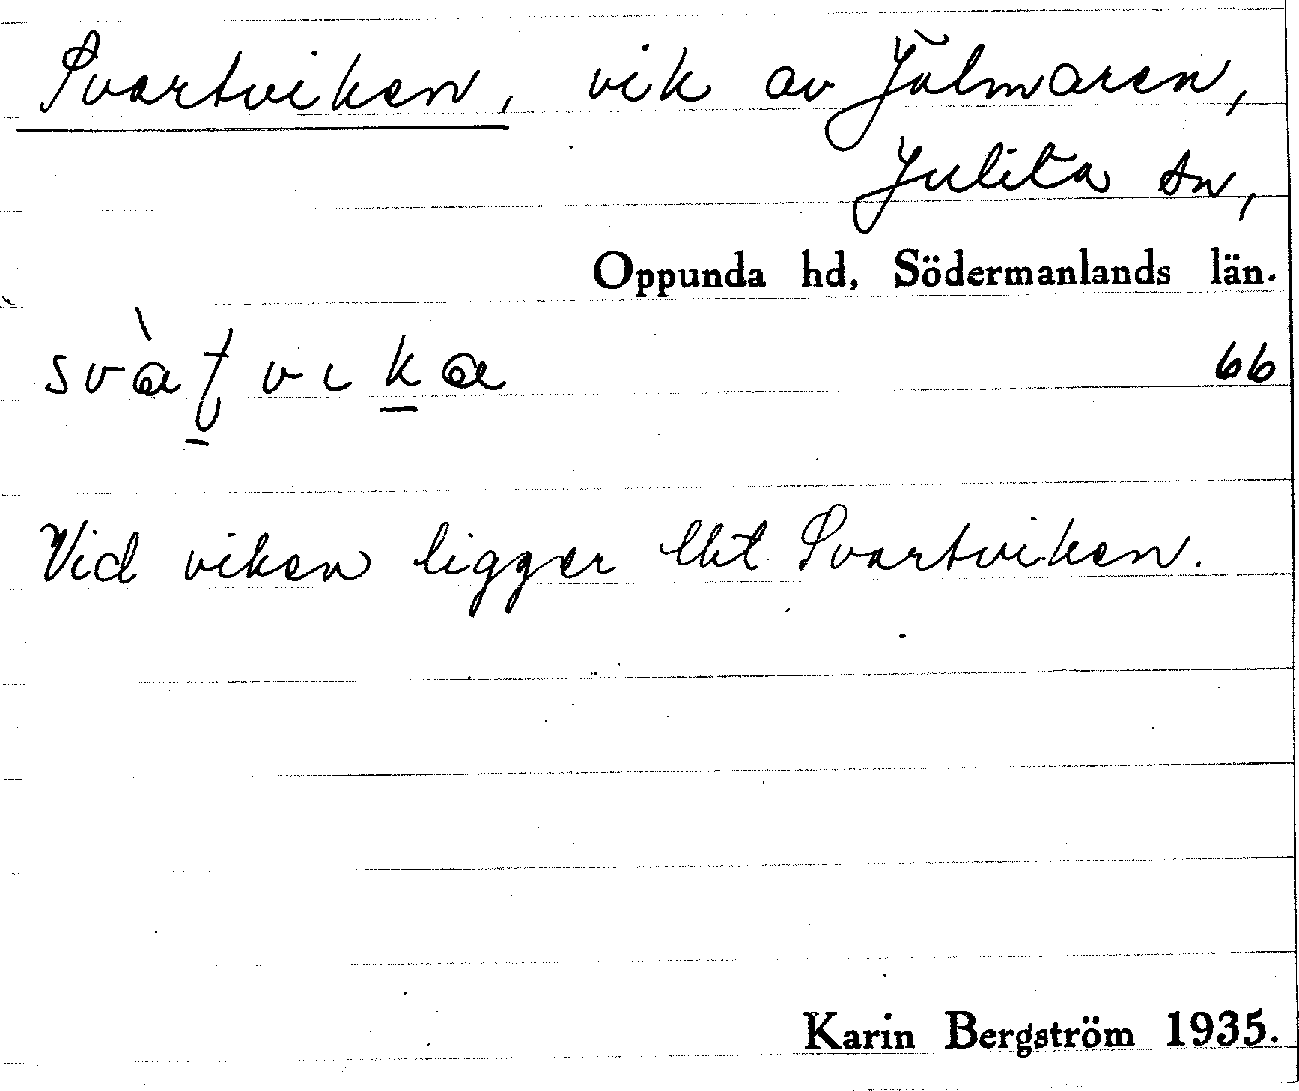 Svartviken, vik av Jälmaren,
Julita sn,
Oppunda hd, Södermanlands län.
66
Vid viken ligger lht Svartviken.
Karin Bergström 1935.